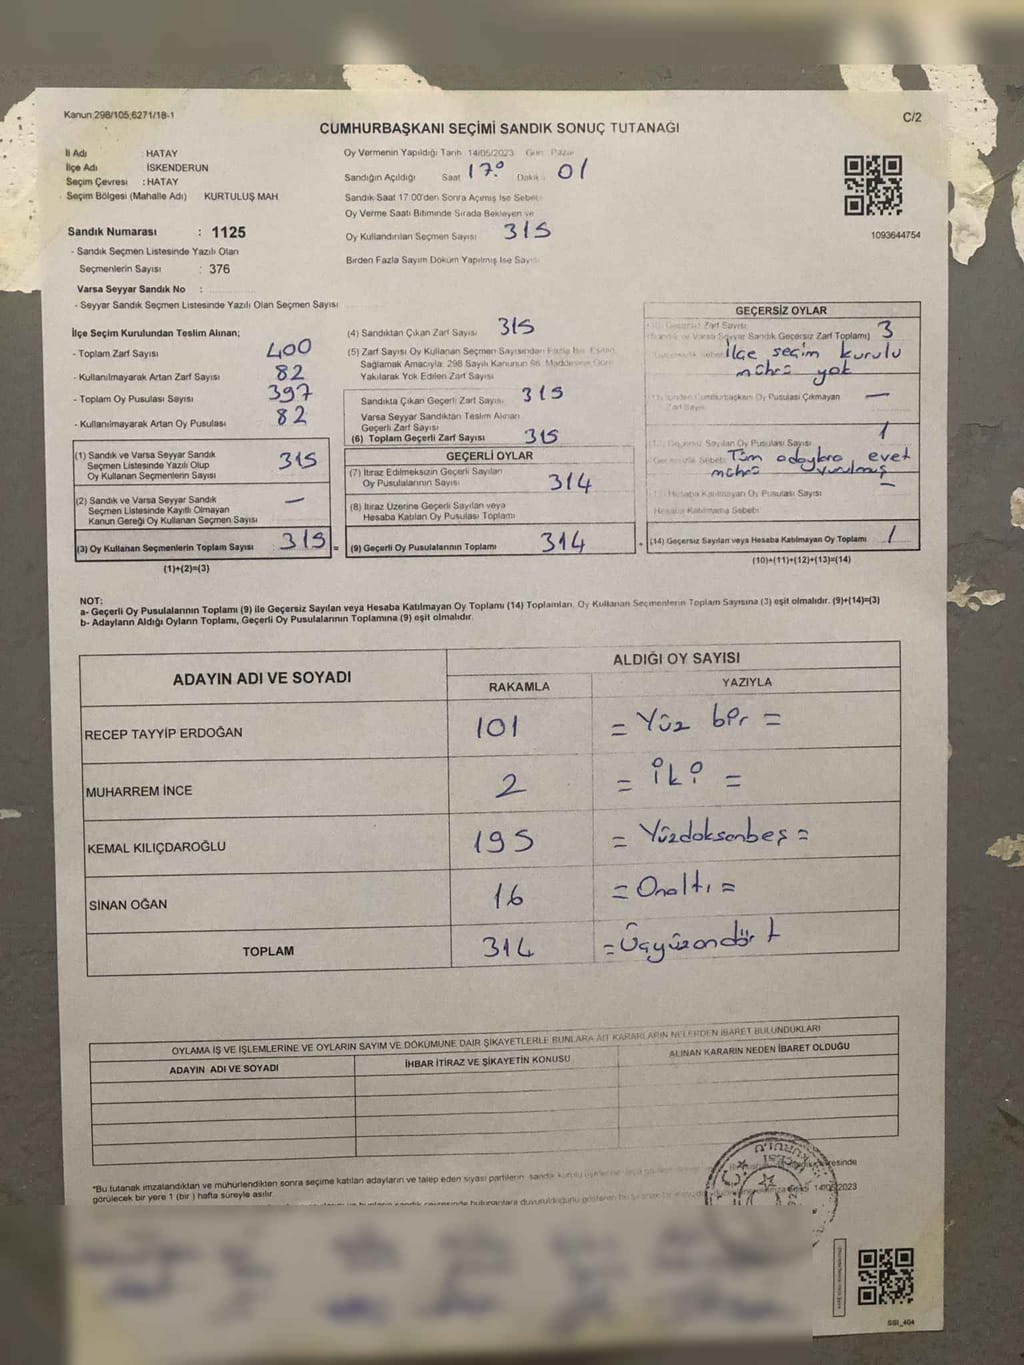 Kanun:298/105,6271/18-1
C/2
CUMHURBAŞKANI SEÇİMİ SANDIK SONUÇ TUTANAĞI
İl Adı : HATAY
İlçe Adı : İSKENDERUN
Seçim Çevresi : HATAY
Seçim Bölgesi (Mahalle Adı) KURTULUŞ MAH
Sandık Numarası : 1125
- Sandık Seçmen Listesinde Yazılı Olan
Seçmenlerin Sayısı : 376
Varsa Seyyar Sandık No :
- Seyyar Sandık Seçmen Listesinde Yazılı Olan Seçmen Sayısı
Oy Vermenin Yapıldığı Tarih 14/05/2023 Gün: Pazar
Sandığın Açıldığı Saat 17.0 Dakika 01
Sandık Saat 17:00'den Sonra Açımış İse Sebebi
Oy Verme Saati Bitiminde Sırada Bekleyen ve
Oy Kullandırılan Seçmen Sayısı 315
Birden Fazla Sayım Döküm Yapılmış İse Sayısı
1093644754
İlçe Seçim Kurulundan Teslim Alınan;
- Toplam Zarf Sayısı 400
- Kullanılmayarak Artan Zarf Sayısı 82
- Toplam Oy Pusulası Sayısı 397
- Kullanılmayarak Artan Oy Pusulası 82
(1) Sandık ve Varsa Seyyar Sandık
Seçmen Listesinde Yazılı Olup
Oy Kullanan Seçmenlerin Sayısı 315
(2) Sandık ve Varsa Seyyar Sandık
Seçmen Listesinde Kayıtlı Olmayan
Kanun Gereği Oy Kullanan Seçmen Sayısı —
(3) Oy Kullanan Seçmenlerin Toplam Sayısı 315 =
(1)+(2)=(3)
(4) Sandıktan Çıkan Zarf Sayısı 315
(5) Zarf Sayısı Oy Kullanan Seçmen Sayısından Fazla İse Fazlası
Sağlamak Amacıyla, 298 Sayılı Kanunun 98. Maddesine Göre
Yakılarak Yok Edilen Zarf Sayısı
Sandıkta Çıkan Geçerli Zarf Sayısı 315
Varsa Seyyar Sandıktan Teslim Alınan
Geçerli Zarf Sayısı
(6) Toplam Geçerli Zarf Sayısı 315
GEÇERLİ OYLAR
(7) İtiraz Edilmeksizin Geçerli Sayılan
Oy Pusulalarının Sayısı 314
(8) İtiraz Üzerine Geçerli Sayılan veya
Hesaba Katılan Oy Pusulası Toplamı
(9) Geçerli Oy Pusulalarının Toplamı 314 +
GEÇERSİZ OYLAR
(10) Geçersiz Zarf Sayısı
(Sandık ve Varsa Seyyar Sandık Geçersiz Zarf Toplamı) 3
İlçe seçim kurulu
mührü yok
Cumhurbaşkanı Oy Pusulası Çıkmayan
Zarf Sayısı —
Geçersiz Sayılan Oy Pusulası Sayısı 1
Geçersizlik Sebebi Tüm adaylara evet
mührü vurulmuş
Hesaba Katılmayan Oy Pusulası Sayısı —
Hesaba Katılmama Sebebi
(14) Geçersiz Sayılan veya Hesaba Katılmayan Oy Toplamı 1
(10)+(11)+(12)+(13)=(14)
NOT:
a- Geçerli Oy Pusulalarının Toplamı (9) ile Geçersiz Sayılan veya Hesaba Katılmayan Oy Toplamı (14) Toplamları, Oy Kullanan Seçmenlerin Toplam Sayısına (3) eşit olmalıdır. (9)+(14)=(3)
b- Adayların Aldığı Oyların Toplamı, Geçerli Oy Pusulalarının Toplamına (9) eşit olmalıdır.
ADAYIN ADI VE SOYADI
ALDIĞI OY SAYISI
RAKAMLA YAZIYLA
RECEP TAYYİP ERDOĞAN 101 = Yüz bir =
MUHARREM İNCE 2 = İki =
KEMAL KILIÇDAROĞLU 195 = Yüzdoksanbeş =
SİNAN OĞAN 16 = Onaltı =
TOPLAM 314 = Üçyüzondört
OYLAMA İŞ VE İŞLEMLERİNE VE OYLARIN SAYIM VE DÖKÜMÜNE DAİR ŞİKAYETLERLE BUNLARA AİT KARARLARIN NELERDEN İBARET BULUNDUKLARI
ADAYIN ADI VE SOYADI İHBAR İTİRAZ VE ŞİKAYETİN KONUSU ALINAN KARARIN NEDEN İBARET OLDUĞU
*Bu tutanak imzalandıktan ve mühürlendikten sonra seçime katılan adayların ve talep eden siyasi partilerin sandık kurulu
görülecek bir yere 1 (bir) hafta süreyle asılır.
SSI_404